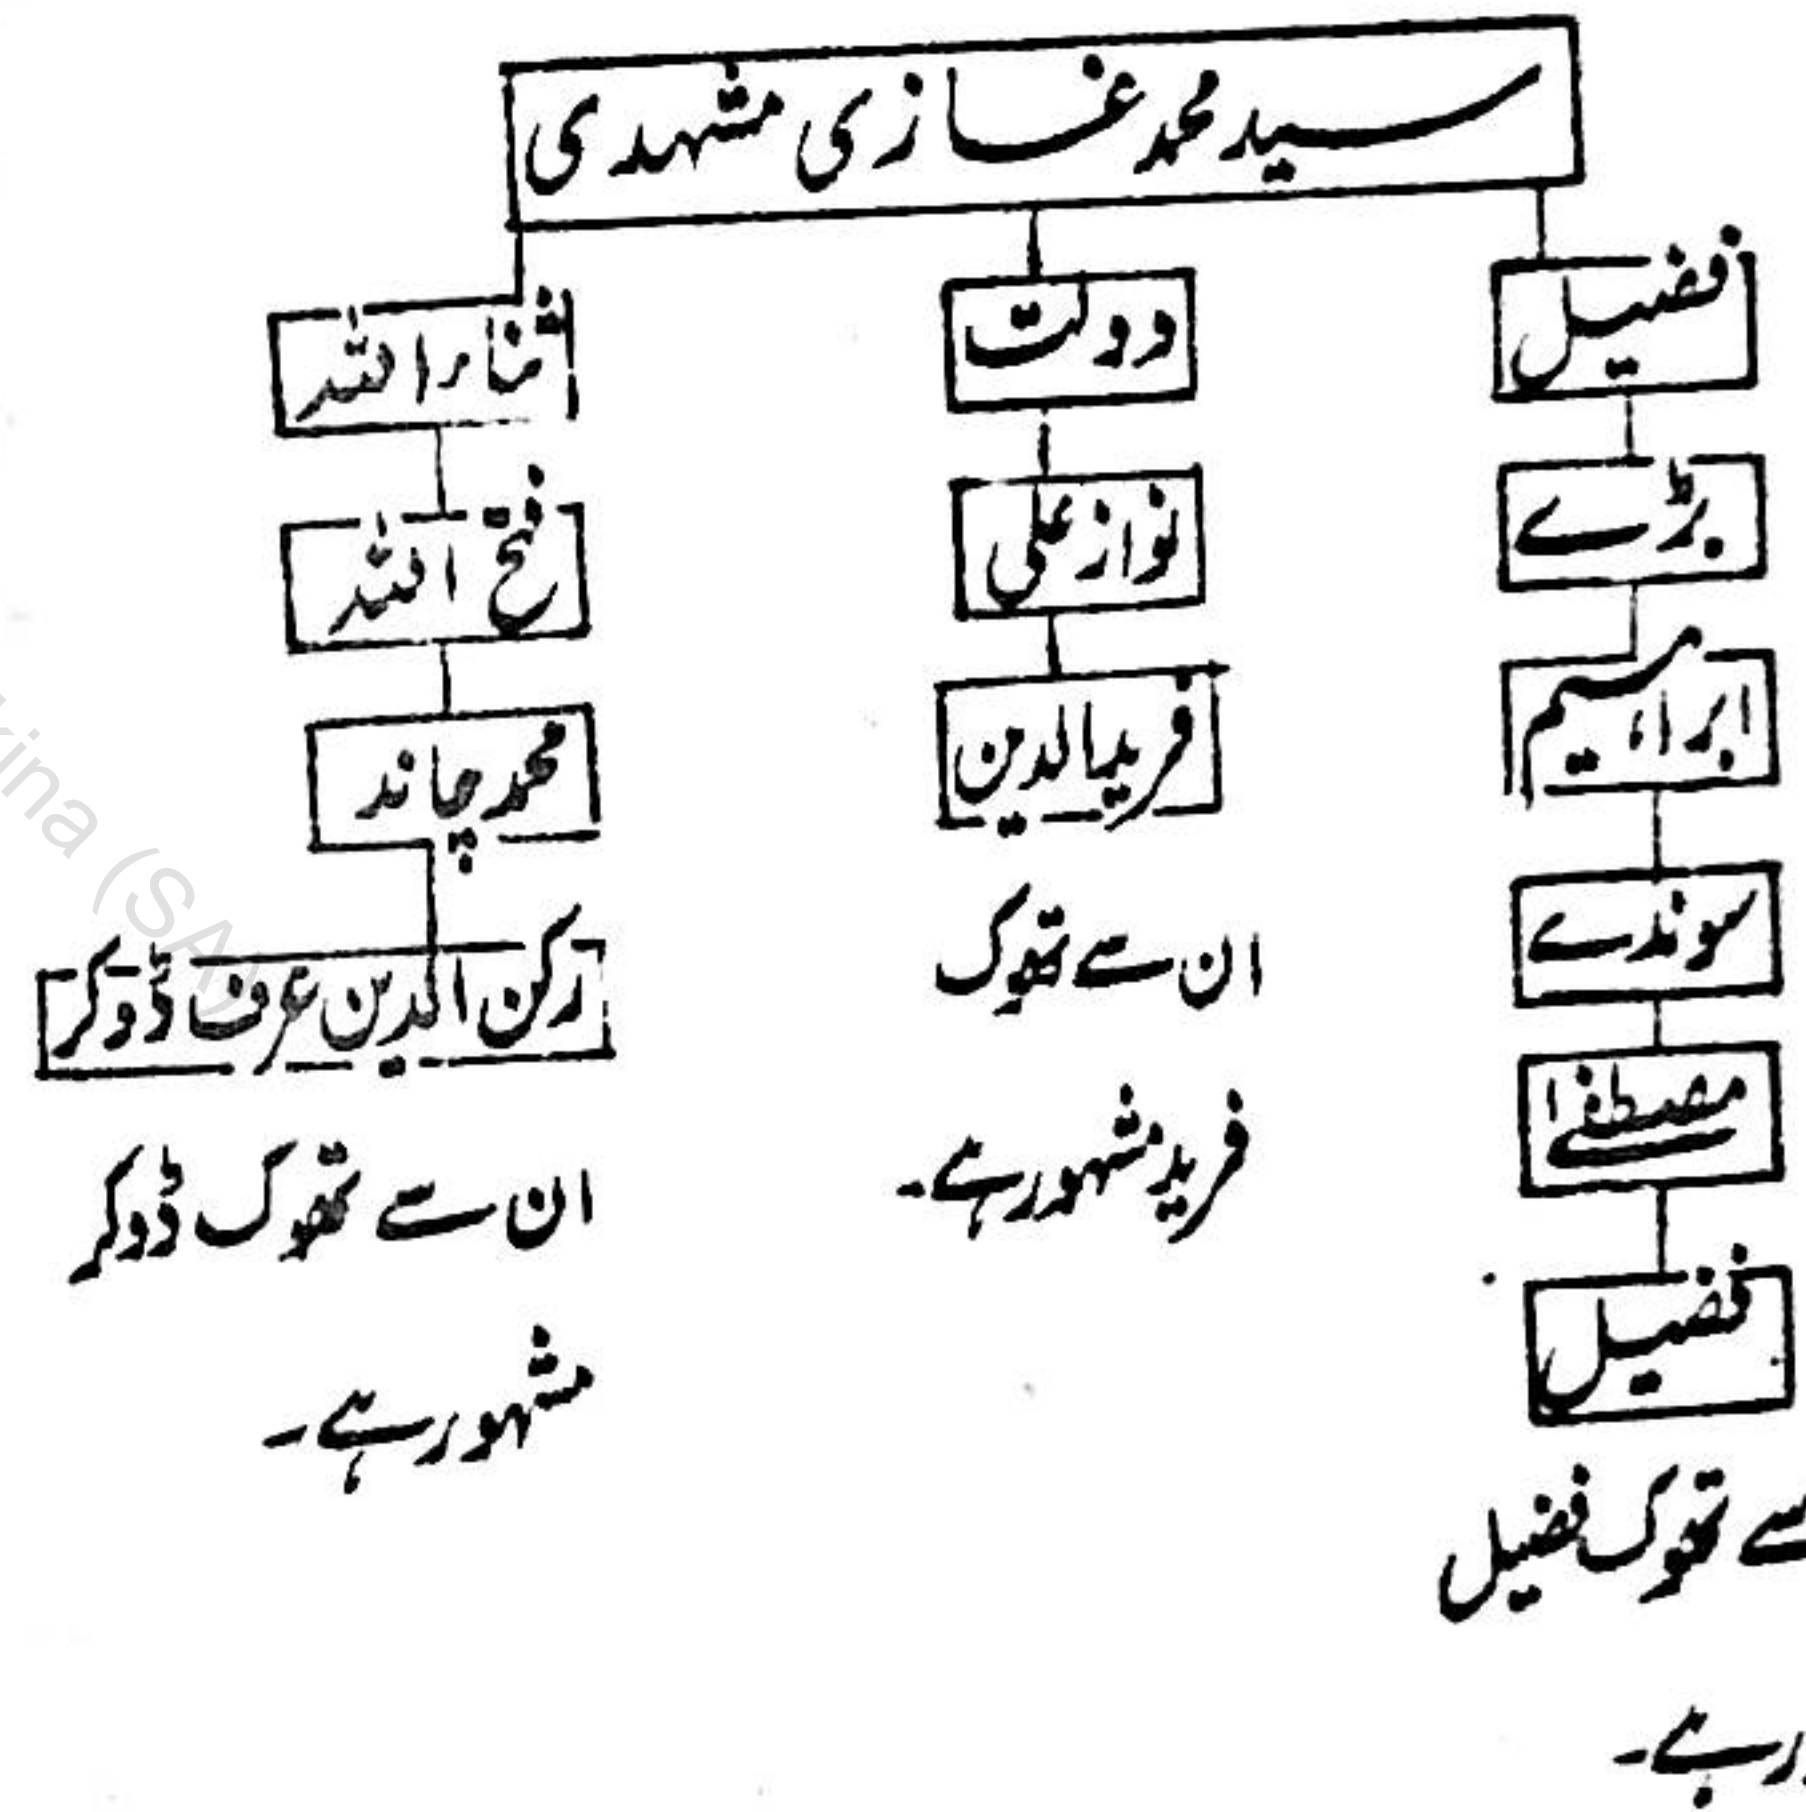 سید محمد غازی مشہدی
فضیل
بڑے
ابراہیم
سوندے
مصطفےٰ
فضیل
سے تھوک فضیل
رہے۔
دولت
نواز علی
فرید الدین
ان سے تھوک
فرید مشہور ہے۔
ثناء اللہ
فتح اللہ
محمد چاند
رکن الدین عرف ڈوکر
ان سے تھوک ڈوکر
مشہور ہے۔
kina (SA)